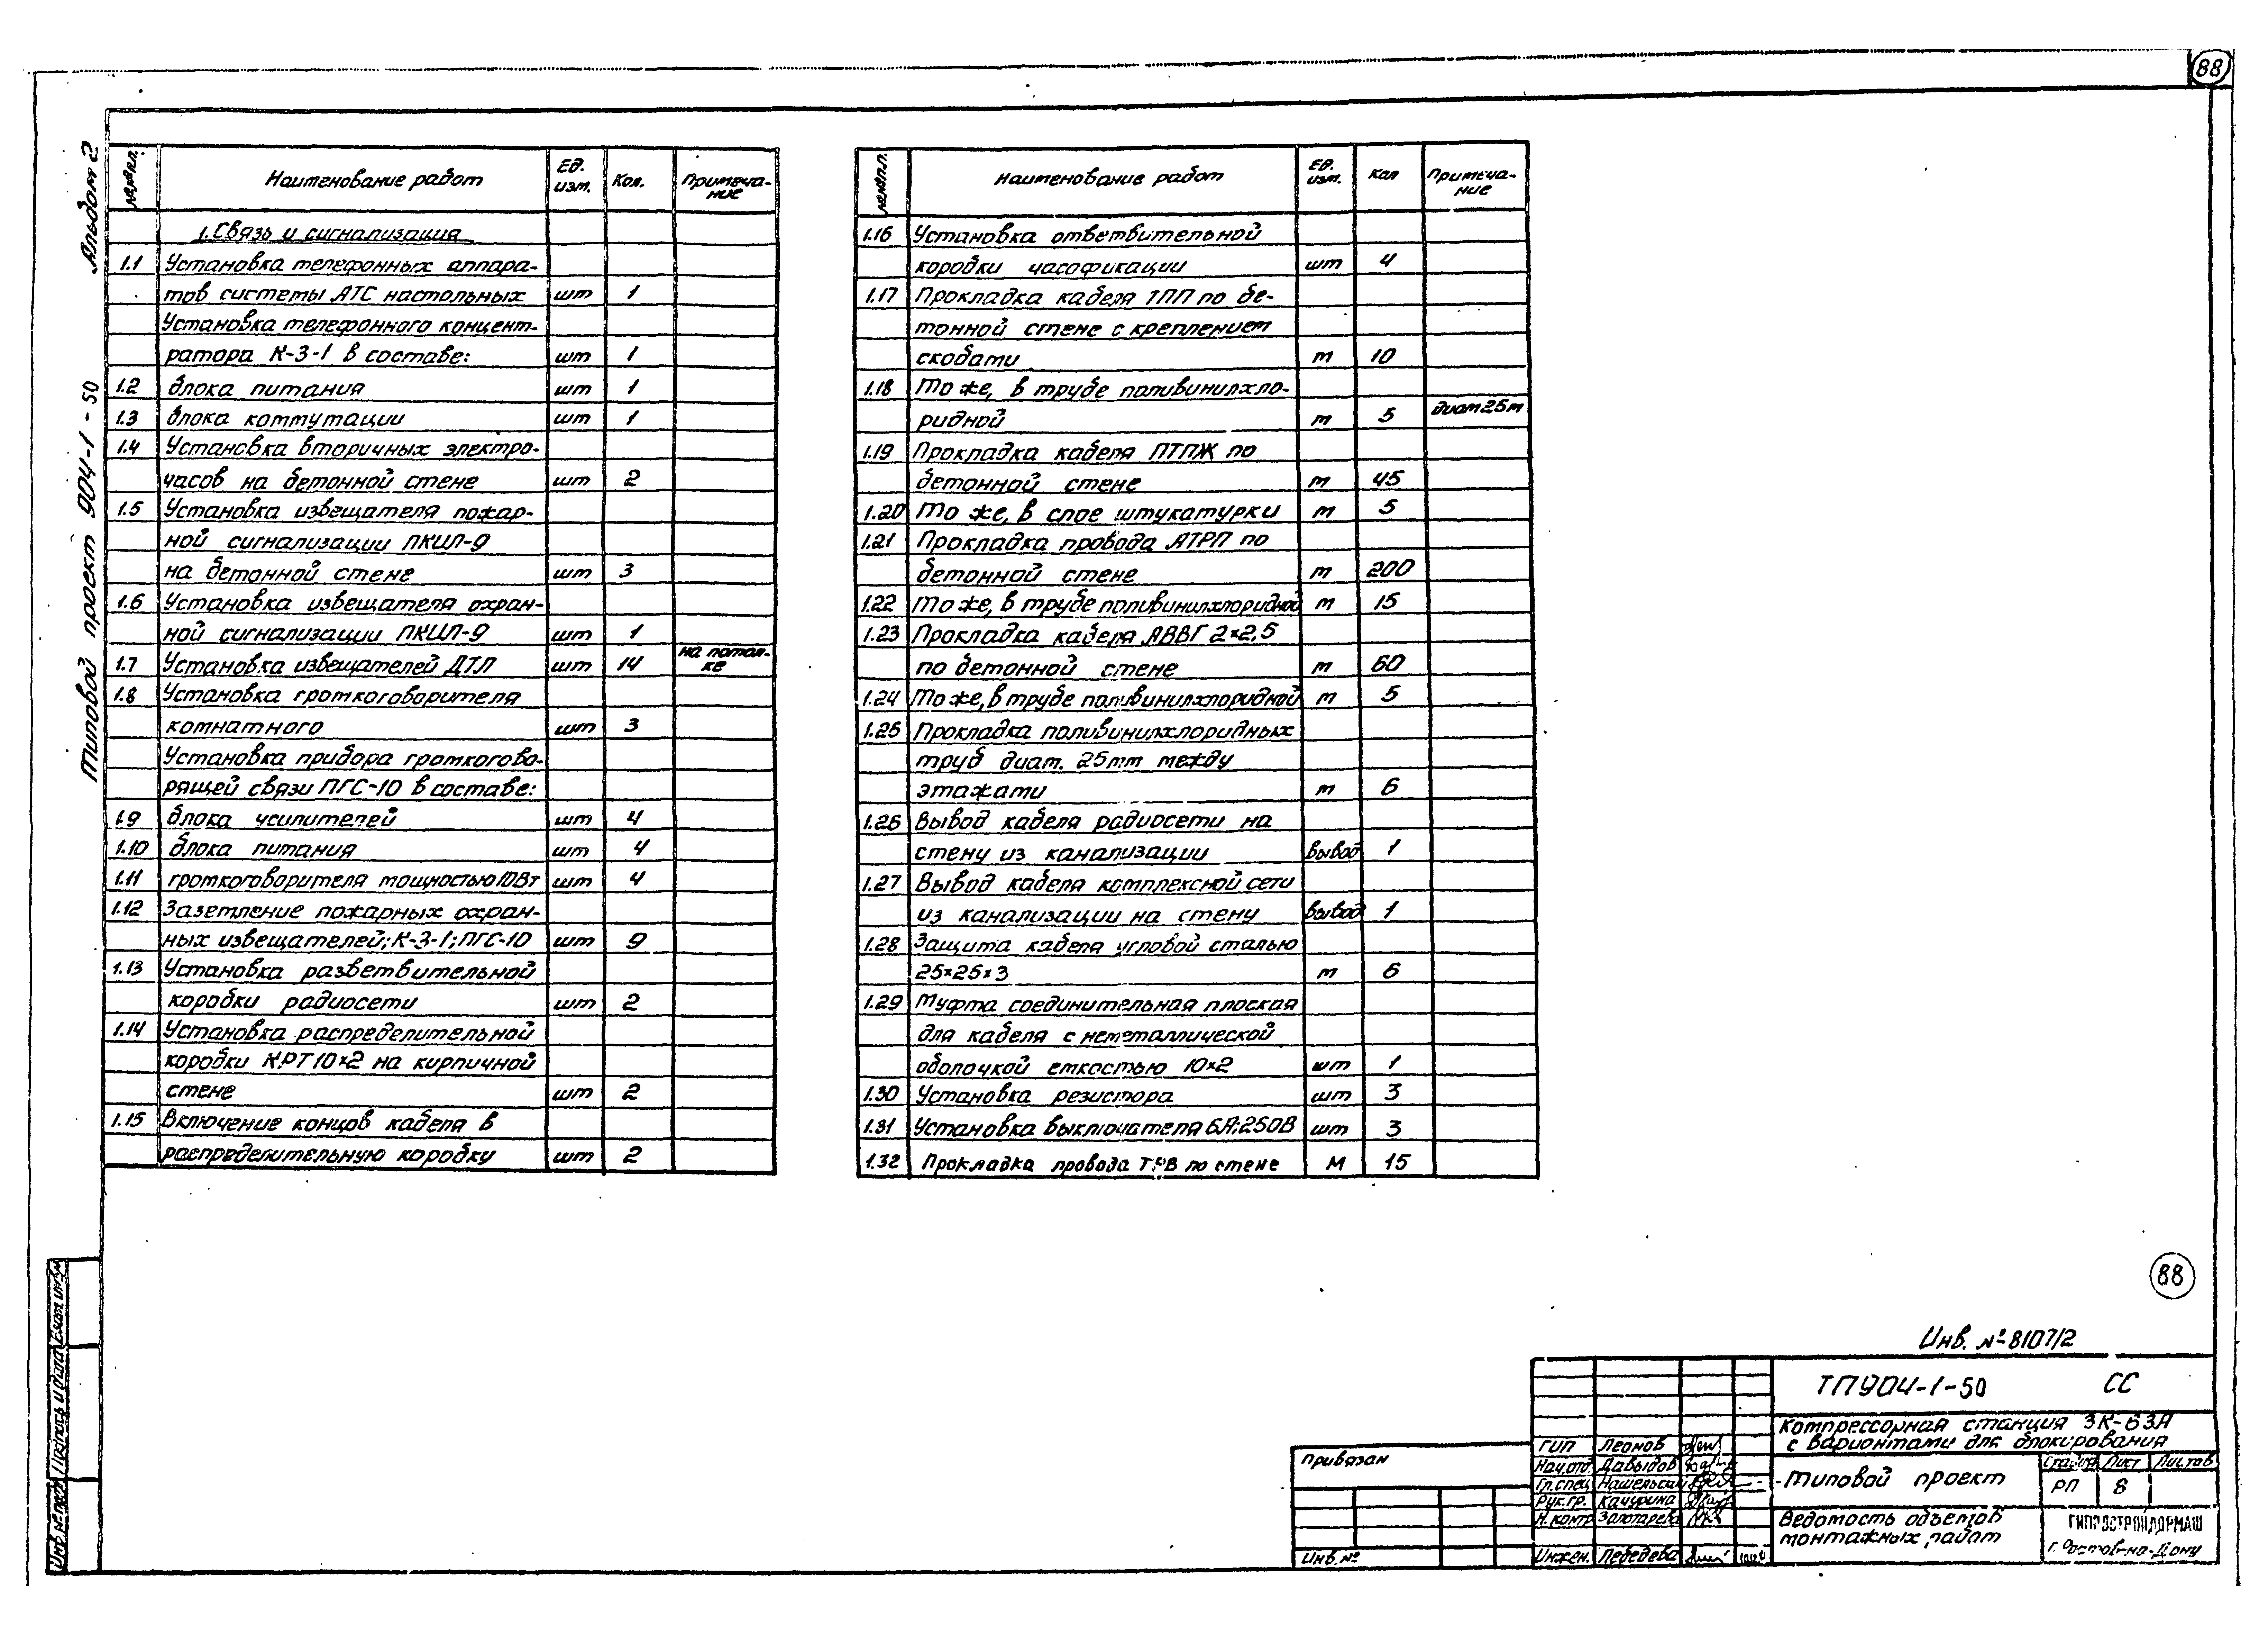 88
Альбом 2
Типовой проект 904-1-50
№№ п.п. Наименование работ Ед. изм. Кол. Примеча-ние
1. Связь и сигнализация
1.1 Установка телефонных аппара-
тов системы АТС настольных шт 1
Установка телефонного концент-
ратора К-3-1 в составе: шт 1
1.2 блока питания шт 1
1.3 блока коммутации шт 1
1.4 Установка вторичных электро-
часов на бетонной стене шт 2
1.5 Установка извещателя пожар-
ной сигнализации ПКИЛ-9
на бетонной стене шт 3
1.6 Установка извещателя охран-
ной сигнализации ПКИЛ-9 шт 1
1.7 Установка извещателей ДТЛ шт 14 на потол-ке
1.8 Установка громкоговорителя
комнатного шт 3
Установка прибора громкогово-
рящей связи ПГС-10 в составе:
1.9 блока усилителей шт 4
1.10 блока питания шт 4
1.11 громкоговорителя мощностью 10Вт шт 4
1.12 Заземление пожарных охран-
ных извещателей; К-3-1; ПГС-10 шт 9
1.13 Установка разветвительной
коробки радиосети шт 2
1.14 Установка распределительной
коробки КРТ 10×2 на кирпичной
стене шт 2
1.15 Включение концов кабеля в
распределительную коробку шт 2
№№ п.п. Наименование работ Ед. изм. Кол Примеча-ние
1.16 Установка ответвительной
коробки часофикации шт 4
1.17 Прокладка кабеля ТПП по бе-
тонной стене с креплением
скобами м 10
1.18 То же, в трубе поливинилхло-
ридной м 5 диам 25м
1.19 Прокладка кабеля ПТПЖ по
бетонной стене м 45
1.20 То же, в слое штукатурки м 5
1.21 Прокладка провода АТРП по
бетонной стене м 200
1.22 То же, в трубе поливинилхлоридной м 15
1.23 Прокладка кабеля АВВГ 2×2,5
по бетонной стене м 60
1.24 То же, в трубе поливинилхлоридной м 5
1.25 Прокладка поливинилхлоридных
труб диам. 25мм между
этажами м 6
1.26 Вывод кабеля радиосети на
стену из канализации вывод 1
1.27 Вывод кабеля комплексной сети
из канализации на стену вывод 1
1.28 Защита кабеля угловой сталью
25×25×3 м 6
1.29 Муфта соединительная плоская
для кабеля с неметаллической
оболочкой емкостью 10×2 шт 1
1.30 Установка резистора шт 3
1.31 Установка выключателя 6А;250В шт 3
1.32 Прокладка провода ТРВ по стене М 15
88
Инв. №8107/2
ТП904-1-50 СС
Компрессорная станция 3К-63А
с вариантами для блокирования
Типовой проект
Стадия Лист Листов
РП 8
Ведомость объемов
монтажных работ
ГИПРОСТРОЙДОРМАШ
г. Ростов-на-Дону
ГИП Леонов
Нач.отд. Давыдов
Гл.спец. Нашельский
Рук.гр. Качурина
Н.контр Золотарева
Инжен. Лебедева
Привязан
Инв.№
Инв.№ подл. Подпись и дата Взам.инв.№